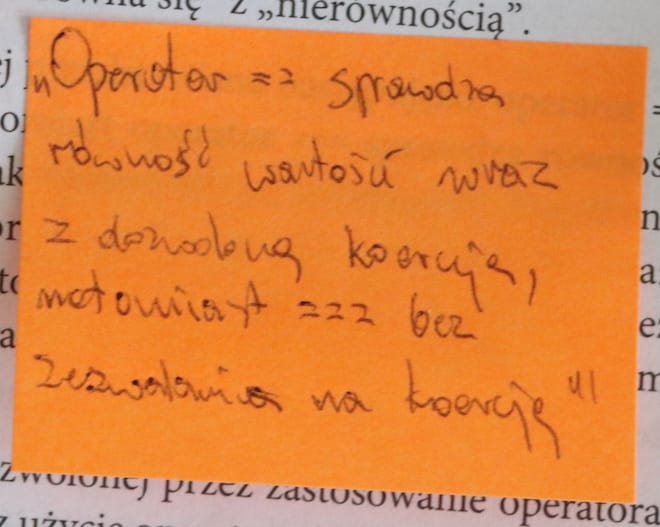 z „nierównością”.
„Operator == sprawdza
równość wartości wraz
z dozwoloną koercją,
natomiast === bez
zezwalania na koercję"
zwolonej przez zastosowanie operatora
z użycie